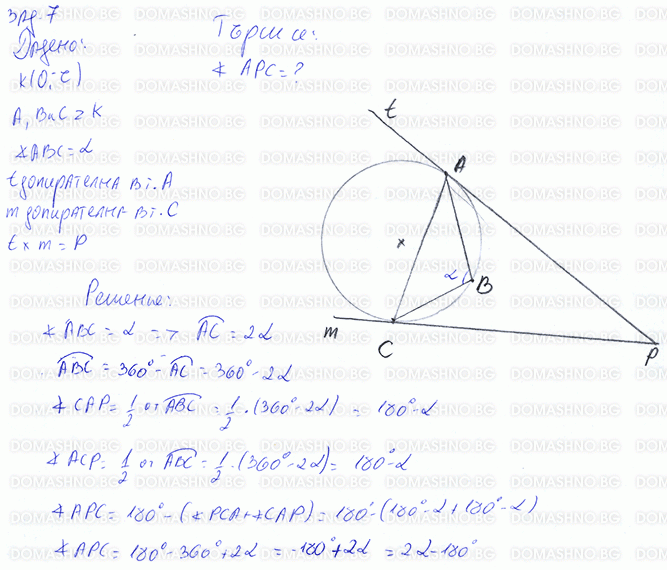 Зад. 7
Дадено:
Търси се:
k(O; r)
∢ APC = ?
A, B и C ∈ K
∢ABC = α
t допирателна в т. A
m допирателна в т. C
t × m = P
t
A
α
B
m
C
P
Решение:
∢ ABC = α => AC = 2α
ABC = 360° - AC = 360° - 2α
∢ CAP = 1/2 от ABC = 1/2 . (360° - 2α) = 180° - α
∢ ACP = 1/2 от ABC = 1/2 . (360° - 2α) = 180° - α
∢ APC = 180° - (∢ PCA + ∢ CAP) = 180° - (180° - α + 180° - α)
∢ APC = 180° - 360° + 2α = -180° + 2α = 2α - 180°
DOMASHNO.BG